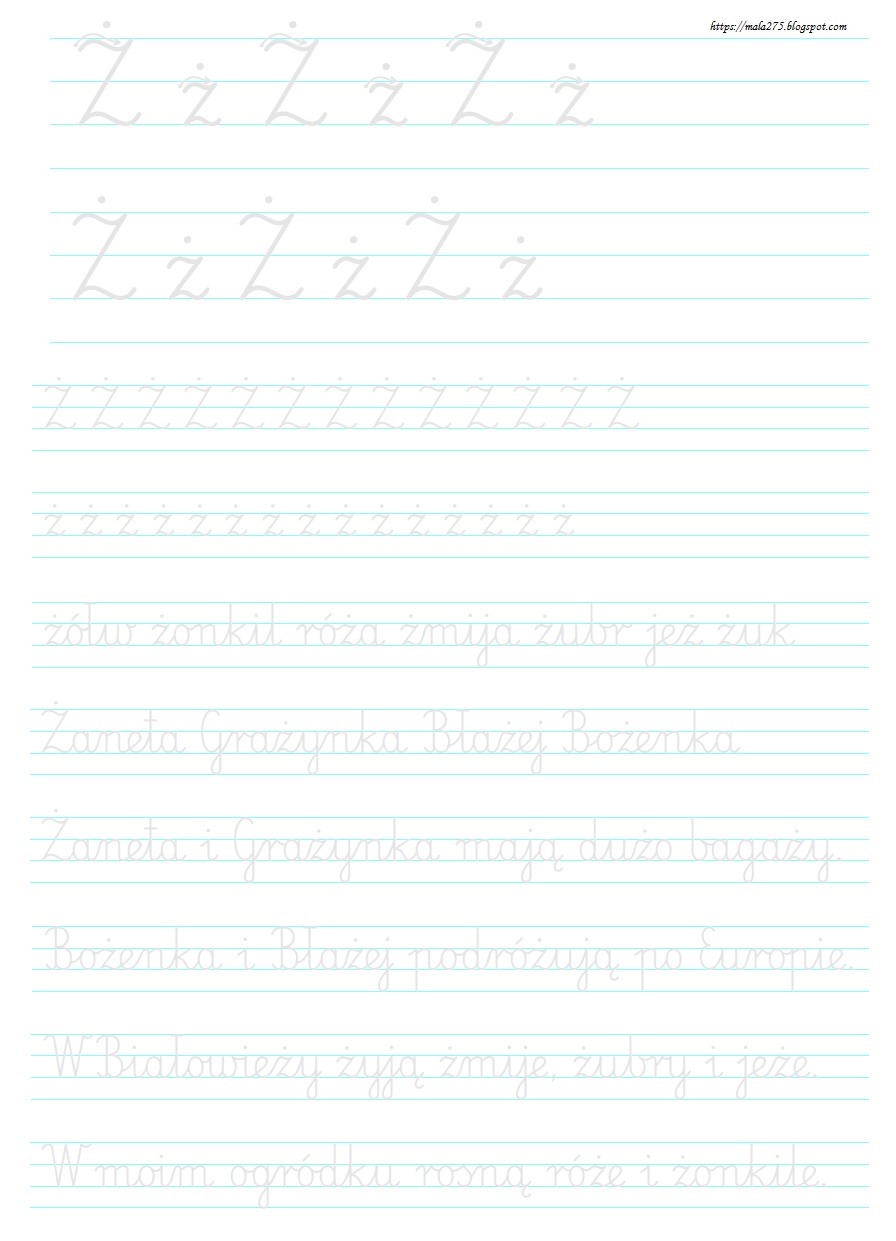 https://mala275.blogspot.com
Ż ż Ż ż Ż ż
Ż ż Ż ż Ż ż
Ż Ż Ż Ż Ż Ż Ż Ż Ż Ż Ż Ż Ż
ż ż ż ż ż ż ż ż ż ż ż ż ż ż ż
żółw żonkil róża żmija żubr jeż żuk
Żaneta Grażynka Błażej Bożenka
Żaneta i Grażynka mają dużo bagaży.
Bożenka i Błażej podróżują po Europie.
W Białowieży żyją żmije, żubry i jeże.
W moim ogródku rosną róże i żonkile.